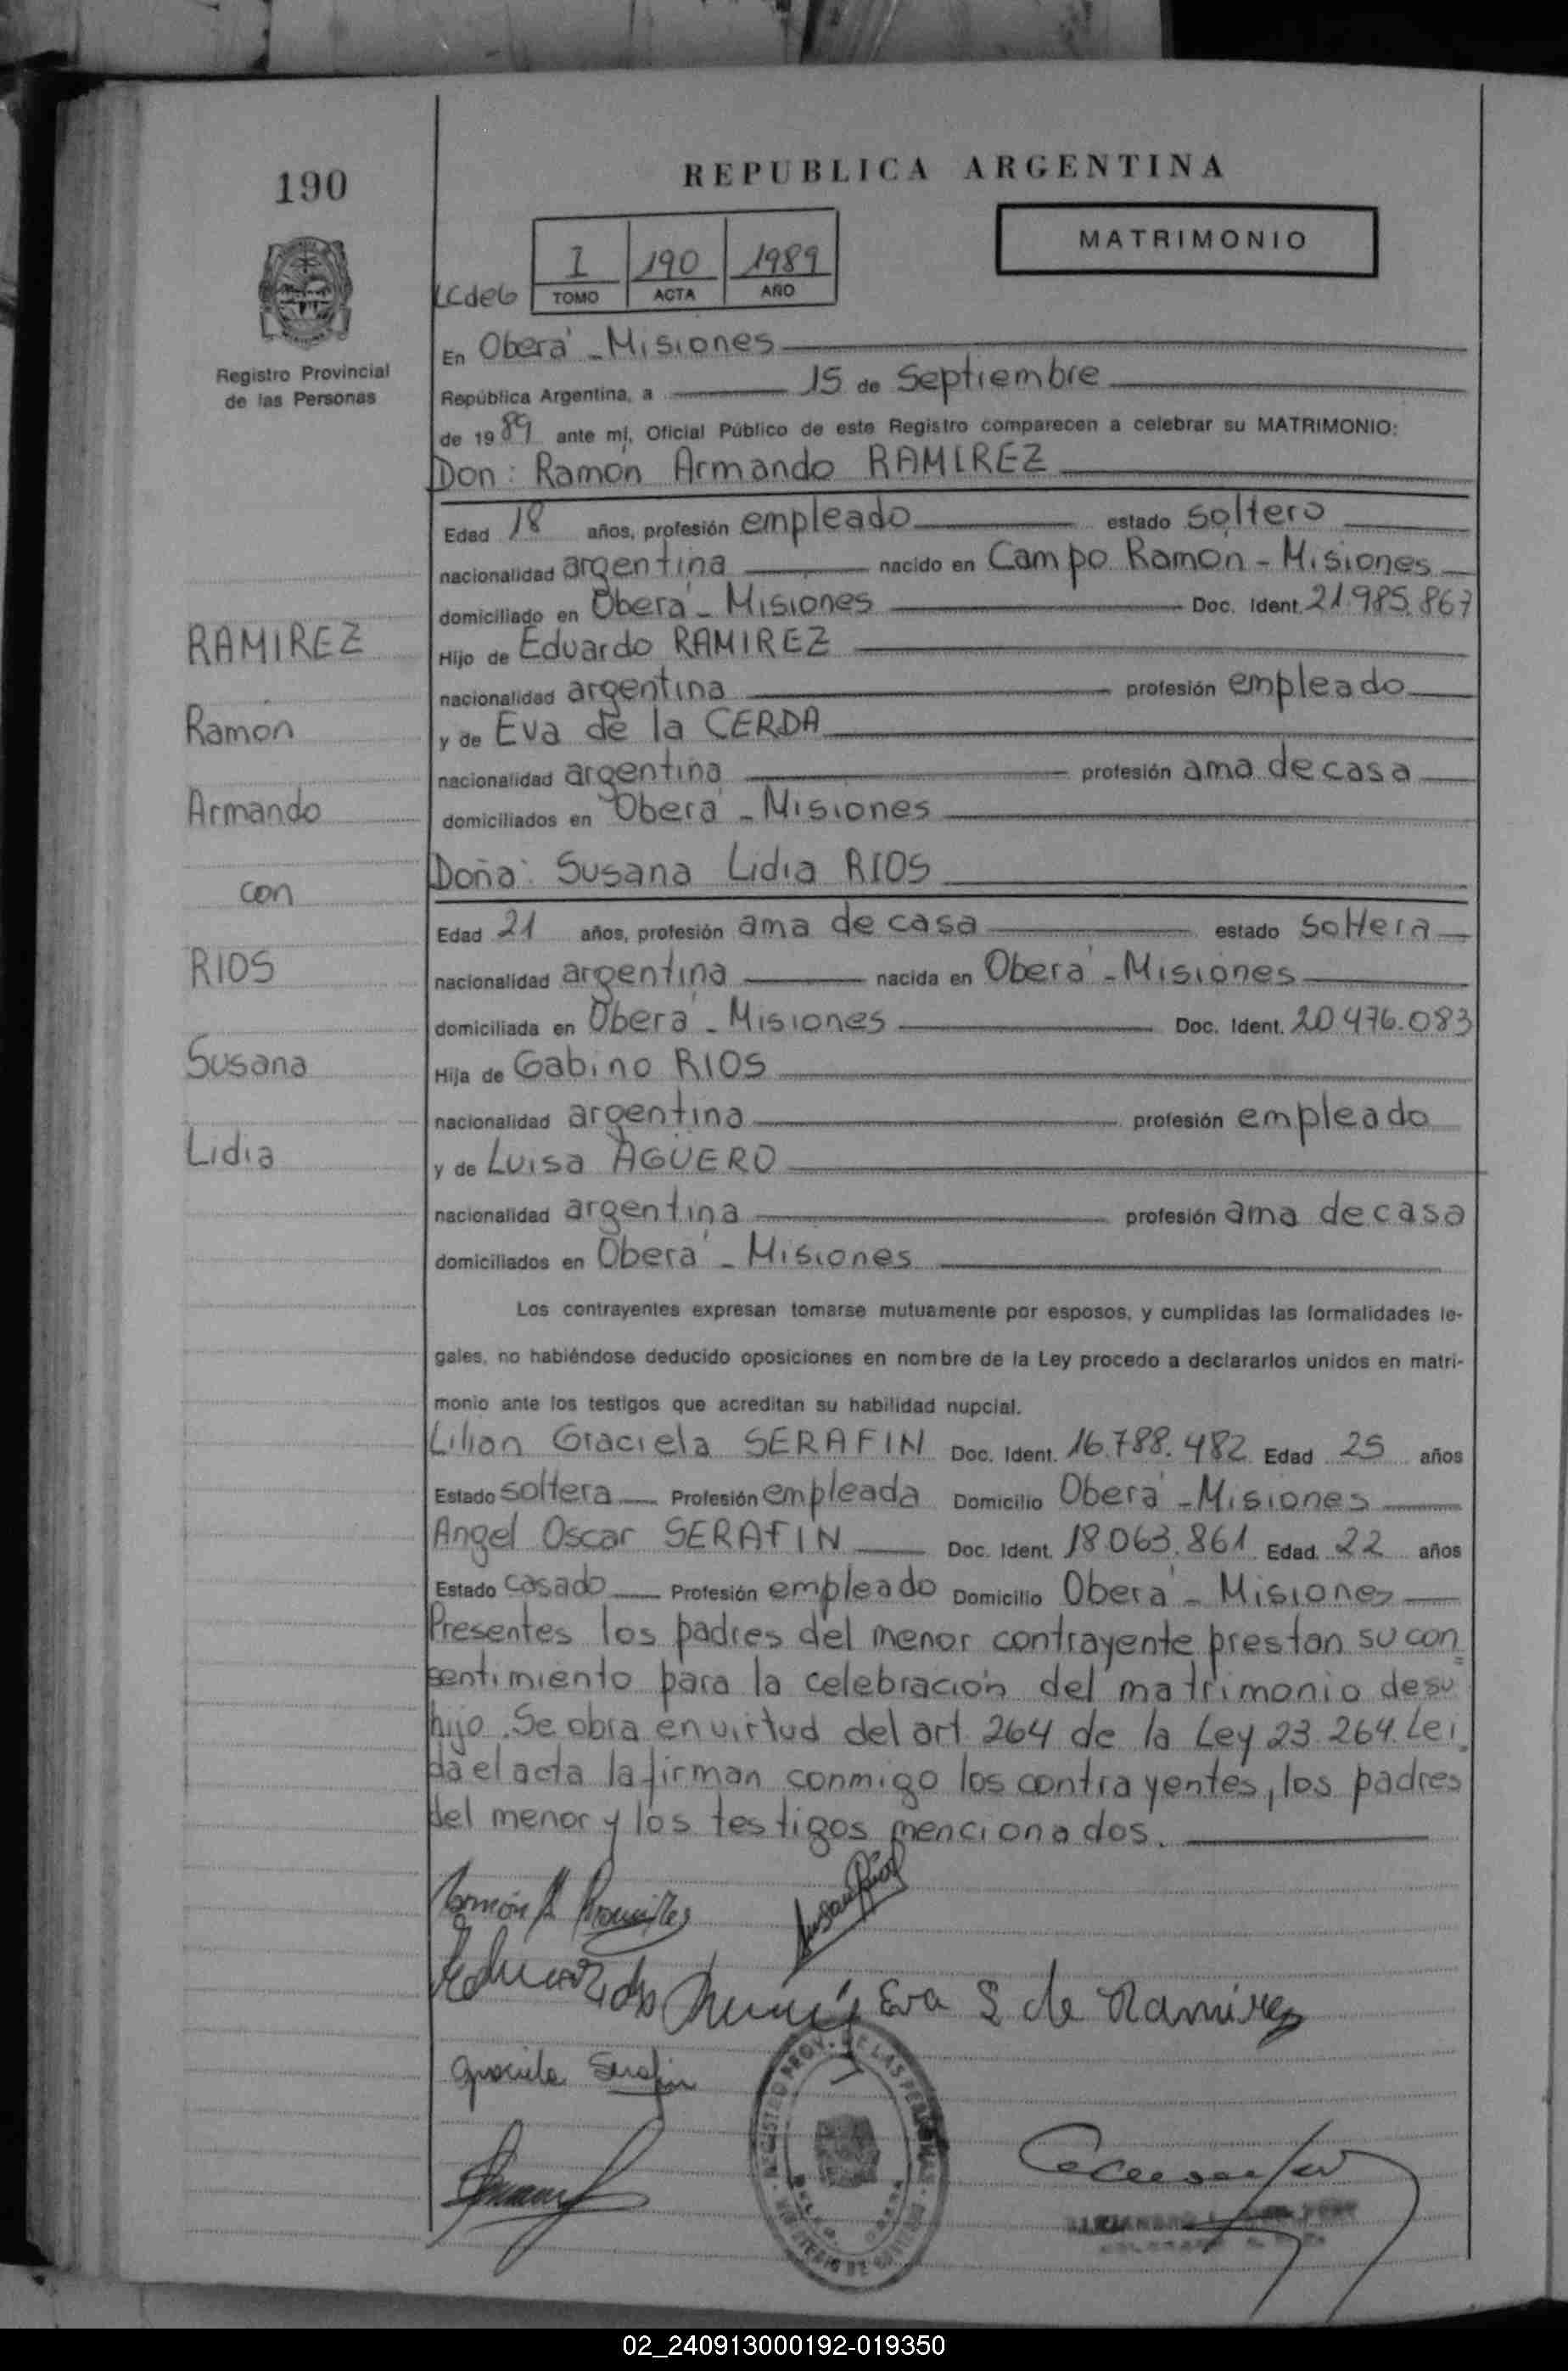 190
REPUBLICA ARGENTINA
MATRIMONIO
I 190 1989
TOMO ACTA AÑO
Registro Provincial
de las Personas
En Oberá - Misiones
República Argentina, a 15 de Septiembre
de 1989 ante mí, Oficial Público de este Registro comparecen a celebrar su MATRIMONIO:
Don: Ramón Armando RAMIREZ
Edad 18 años, profesión empleado estado soltero
nacionalidad argentina nacido en Campo Ramón - Misiones
domiciliado en Oberá - Misiones Doc. Ident. 21.985.867
Hijo de Eduardo RAMIREZ
nacionalidad argentina profesión empleado
y de Eva de la CERDA
nacionalidad argentina profesión ama de casa
domiciliados en Oberá - Misiones
RAMIREZ
Ramón
Armando
con
RIOS
Susana
Lidia
Doña: Susana Lidia RIOS
Edad 21 años, profesión ama de casa estado soltera
nacionalidad argentina nacida en Oberá - Misiones
domiciliada en Oberá - Misiones Doc. Ident. 20.476.083
Hija de Gabino RIOS
nacionalidad argentina profesión empleado
y de Luisa AGÜERO
nacionalidad argentina profesión ama de casa
domiciliados en Oberá - Misiones
Los contrayentes expresan tomarse mutuamente por esposos, y cumplidas las formalidades le-
gales, no habiéndose deducido oposiciones en nombre de la Ley procedo a declararlos unidos en matri-
monio ante los testigos que acreditan su habilidad nupcial.
Lilian Graciela SERAFIN Doc. Ident. 16.788.482 Edad 25 años
Estado soltera Profesión empleada Domicilio Oberá - Misiones
Angel Oscar SERAFIN Doc. Ident. 18.063.861 Edad. 22 años
Estado casado Profesión empleado Domicilio Oberá - Misiones
Presentes los padres del menor contrayente prestan su con=
sentimiento para la celebración del matrimonio de su
hijo. Se obra en virtud del art. 264 de la Ley 23.264. Lei-
da el acta la firman conmigo los contrayentes, los padres
del menor y los testigos mencionados.
Ramón A Ramirez
Susana Rios
Eduardo Ramirez Eva S de Ramirez
Graciela Serafin
REGISTRO PROV. DE LAS PERSONAS
02_240913000192-019350